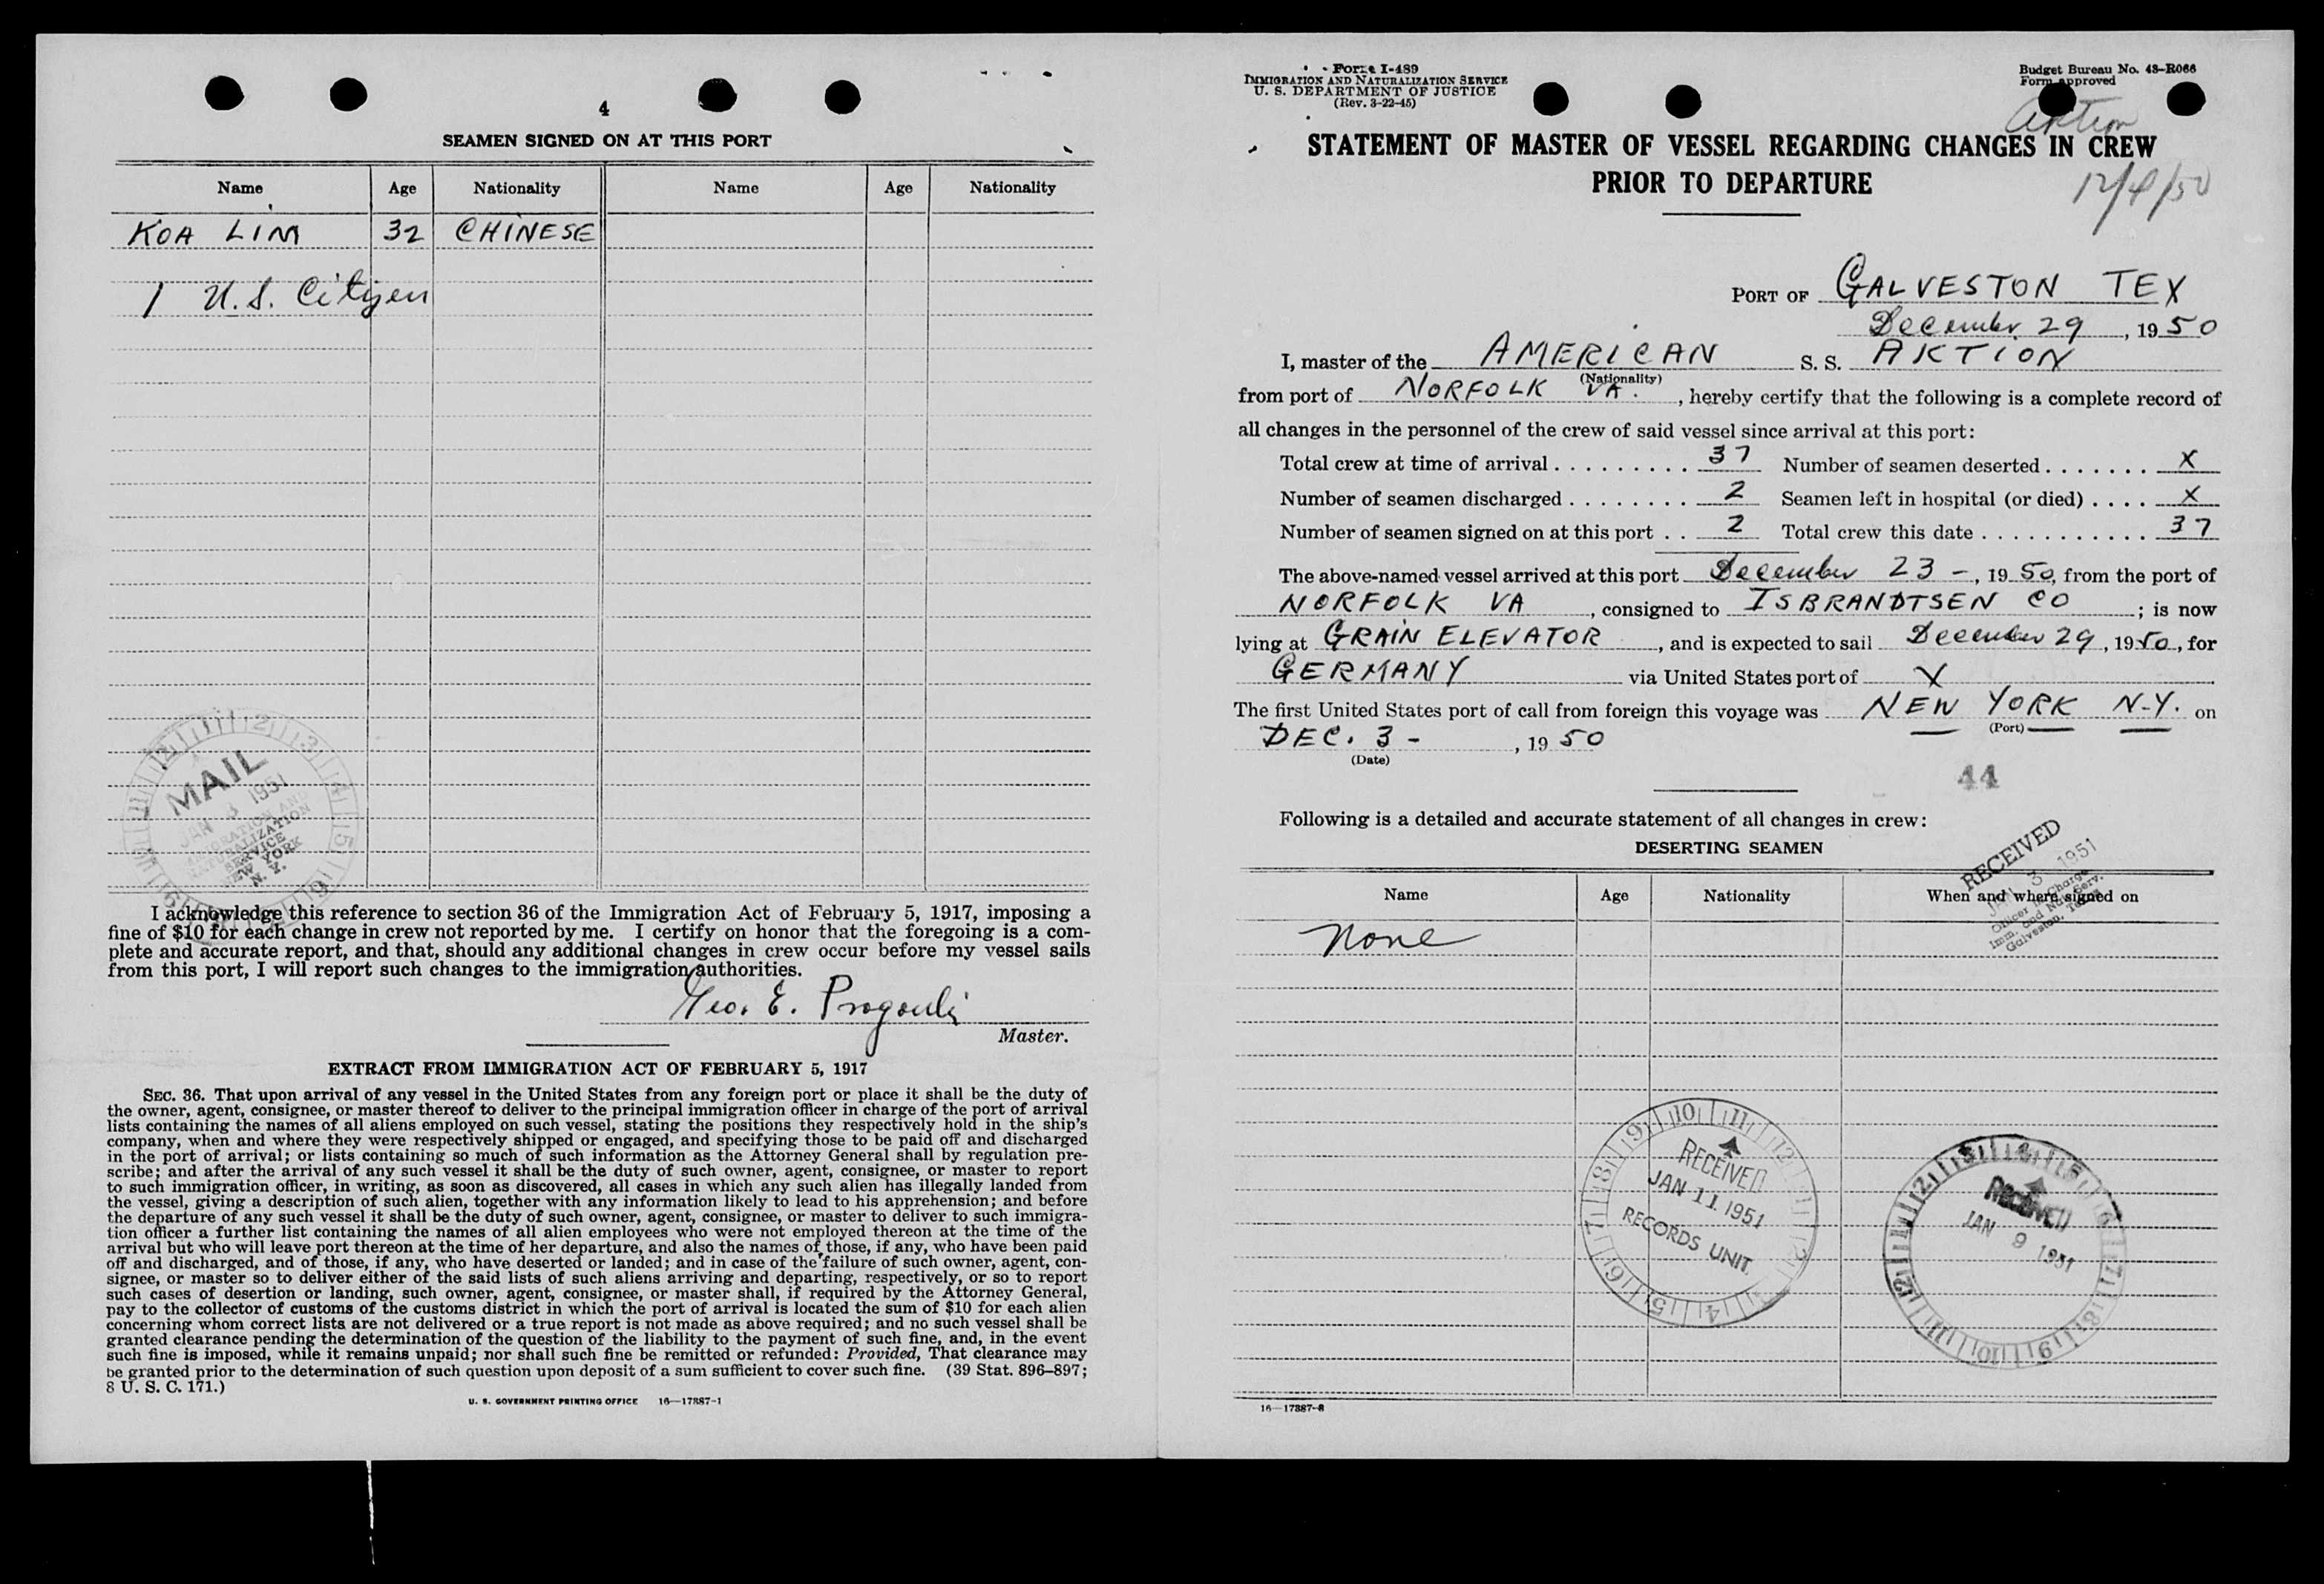 4
SEAMEN SIGNED ON AT THIS PORT
Name Age Nationality Name Age Nationality
KOA LIM 32 CHINESE
1 U.S. Citizen
MAIL
JAN 3 1951
IMMIGRATION AND
NATURALIZATION
SERVICE
NEW YORK
N. Y.
I acknowledge this reference to section 36 of the Immigration Act of February 5, 1917, imposing a
fine of $10 for each change in crew not reported by me. I certify on honor that the foregoing is a com-
plete and accurate report, and that, should any additional changes in crew occur before my vessel sails
from this port, I will report such changes to the immigration authorities.
Geo. E.
Master.
EXTRACT FROM IMMIGRATION ACT OF FEBRUARY 5, 1917
SEC. 36. That upon arrival of any vessel in the United States from any foreign port or place it shall be the duty of
the owner, agent, consignee, or master thereof to deliver to the principal immigration officer in charge of the port of arrival
lists containing the names of all aliens employed on such vessel, stating the positions they respectively hold in the ship's
company, when and where they were respectively shipped or engaged, and specifying those to be paid off and discharged
in the port of arrival; or lists containing so much of such information as the Attorney General shall by regulation pre-
scribe; and after the arrival of any such vessel it shall be the duty of such owner, agent, consignee, or master to report
to such immigration officer, in writing, as soon as discovered, all cases in which any such alien has illegally landed from
the vessel, giving a description of such alien, together with any information likely to lead to his apprehension; and before
the departure of any such vessel it shall be the duty of such owner, agent, consignee, or master to deliver to such immigra-
tion officer a further list containing the names of all alien employees who were not employed thereon at the time of the
arrival but who will leave port thereon at the time of her departure, and also the names of those, if any, who have been paid
off and discharged, and of those, if any, who have deserted or landed; and in case of the failure of such owner, agent, con-
signee, or master so to deliver either of the said lists of such aliens arriving and departing, respectively, or so to report
such cases of desertion or landing, such owner, agent, consignee, or master shall, if required by the Attorney General,
pay to the collector of customs of the customs district in which the port of arrival is located the sum of $10 for each alien
concerning whom correct lists are not delivered or a true report is not made as above required; and no such vessel shall be
granted clearance pending the determination of the question of the liability to the payment of such fine, and, in the event
such fine is imposed, while it remains unpaid; nor shall such fine be remitted or refunded: Provided, That clearance may
be granted prior to the determination of such question upon deposit of a sum sufficient to cover such fine. (39 Stat. 896–897;
8 U. S. C. 171.)
U. S. GOVERNMENT PRINTING OFFICE 16—17887-1
Form I-489
IMMIGRATION AND NATURALIZATION SERVICE
U. S. DEPARTMENT OF JUSTICE
(Rev. 3-22-45)
Budget Bureau No. 43–R066
Form approved
Aktion
STATEMENT OF MASTER OF VESSEL REGARDING CHANGES IN CREW
PRIOR TO DEPARTURE
12/4/50
PORT OF GALVESTON TEX
December 29, 1950
I, master of the AMERICAN S. S. AKTION
(Nationality)
from port of NORFOLK VA., hereby certify that the following is a complete record of
all changes in the personnel of the crew of said vessel since arrival at this port:
Total crew at time of arrival . . . . . . . . . 37 Number of seamen deserted . . . . . . . X
Number of seamen discharged . . . . . . . . 2 Seamen left in hospital (or died) . . . . X
Number of seamen signed on at this port . . 2 Total crew this date . . . . . . . . . . . 37
The above-named vessel arrived at this port December 23 -, 1950, from the port of
NORFOLK VA, consigned to ISBRANDTSEN CO; is now
lying at GRAIN ELEVATOR, and is expected to sail December 29, 1950, for
GERMANY via United States port of X
The first United States port of call from foreign this voyage was NEW YORK N.Y. on
(Port)
DEC. 3 -, 1950
(Date)
44
Following is a detailed and accurate statement of all changes in crew:
DESERTING SEAMEN
RECEIVED
JAN 3 1951
Officer in Charge
Imm. and Nat. Serv.
Galveston, Texas
Name Age Nationality When and where signed on
None
RECEIVED
JAN 11 1951
RECORDS UNIT
RECEIVED
JAN 9 1951
16—17887-8